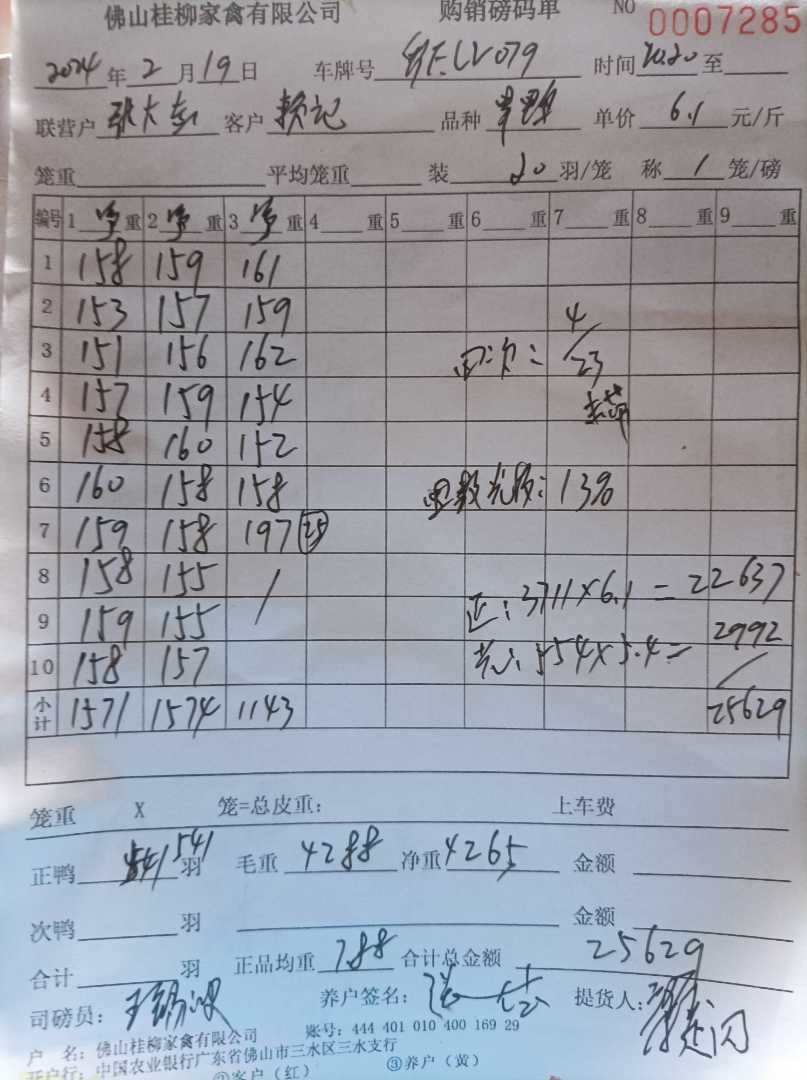 佛山桂柳家禽有限公司 购销磅码单 NO 0007285
2024年2月19日 车牌号 LV079 时间20.20至
联营户 张大 客户 赖记 品种 单价 6.1 元/斤
笼重 平均笼重 装 20 羽/笼 称 1 笼/磅
编号 1 净 重 2 净 重 3 净 重 4 重 5 重 6 重 7 重 8 重 9 重
1 158 159 161
2 153 157 159 4
3 151 156 162 次: 23
4 157 159 154
5 158 160 152
6 160 158 158 13%
7 159 158 197 25
8 158 155 / 正:3711×6.1=22637
9 159 155 2992
10 158 157 :554×5.4=
小计 1571 1574 1143 25629
笼重 X 笼=总皮重: 上车费
正鸭 541 羽 毛重 4288 净重 4265 金额
次鸭 羽 金额
合计 羽 正品均重 7.88 合计总金额 25629
司磅员: 养户签名: 提货人:
户 名: 佛山桂柳家禽有限公司 账号: 444 401 010 400 169 29
开户行: 中国农业银行广东省佛山市三水区三水支行
②客户(红) ③养户(黄)